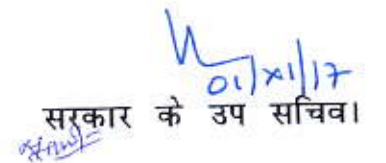 01/XI/17
सरकार के उप सचिव।